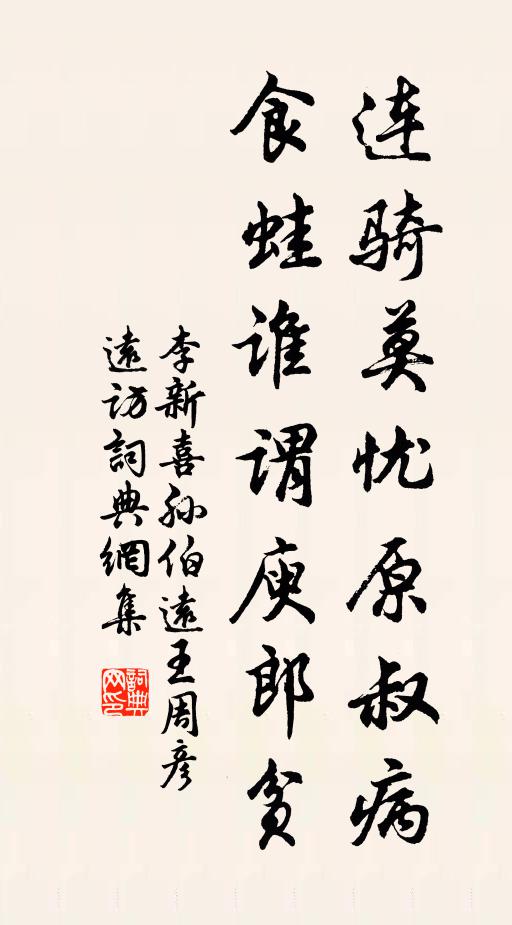 连骑莫忧原叔病
食蛙谁谓庾郎贫
李新喜孙伯遠王周彦
遠访詞典網集
詞典
网印